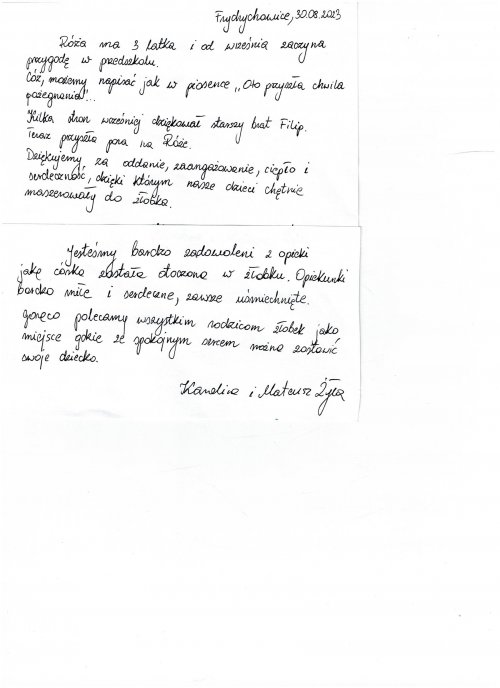 Frydrychowice, 30.08.2023
Rózia ma 3 latka i od września zaczyna
przygodę w przedszkolu.
Cóż, możemy napisać jak w piosence „Oto przyszła chwila
pożegnania"...
Kilka stron wcześniej dziękował starszy brat Filip.
Teraz przyszła pora na Różę.
Dziękujemy, za oddanie, zaangażowanie, ciepło i
serdeczność, dzięki którym nasze dzieci chętnie
maszerowały do żłobka.
Jesteśmy bardzo zadowoleni z opieki
jaką córka została otoczona w żłobku. Opiekunki
bardzo miłe i serdeczne, zawsze uśmiechnięte.
Gorąco polecamy wszystkim rodzicom żłobek jako
miejsce gdzie ze spokojnym sercem można zostawić
swoje dziecko.
Karolina i Mateusz